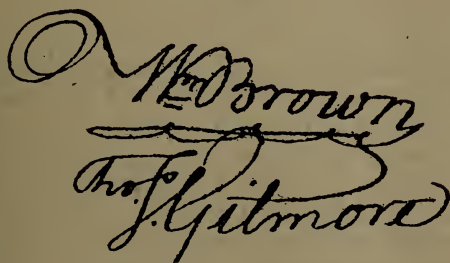 Wm Brown
Thos. Gilmore